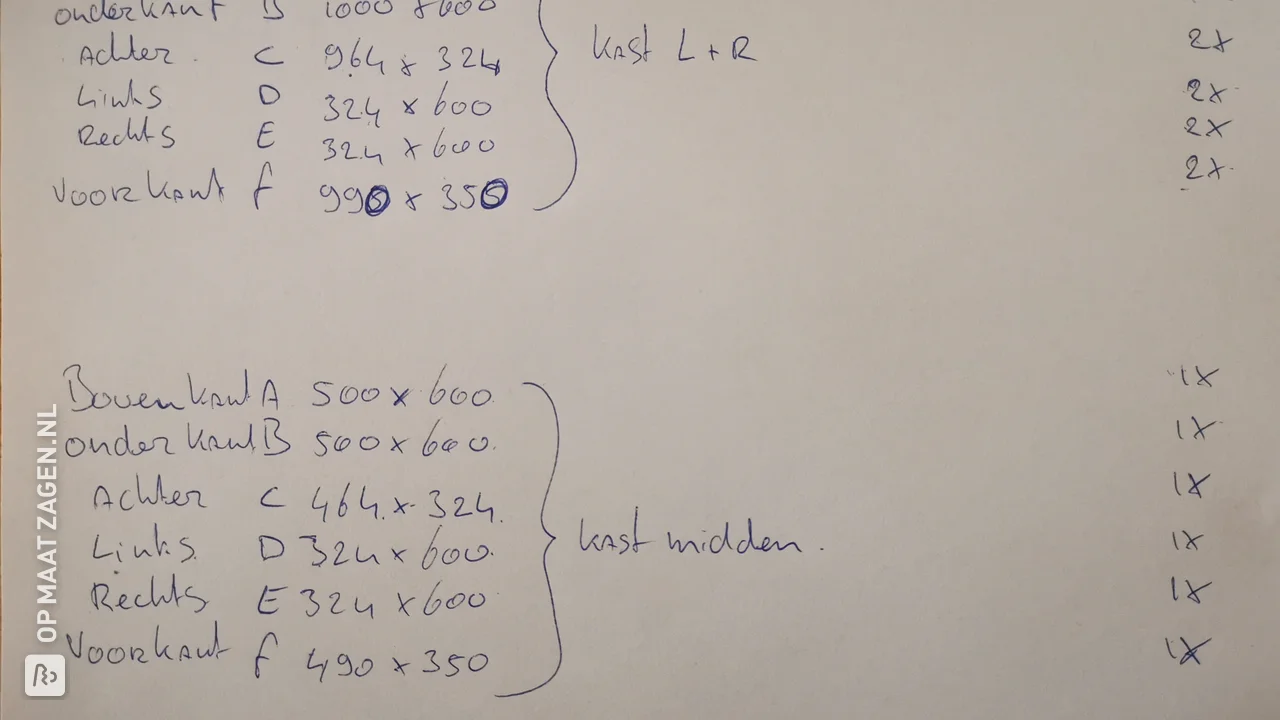 onderkant B 1000 x 600
Achter C 964 x 324 kast L+R 2x
Links D 324 x 600 2x
Rechts E 324 x 600 2x
Voorkant f 990 x 350 2x
Bovenkant A 500 x 600 1x
onderkant B 500 x 600 1x
Achter C 464 x 324 1x
Links D 324 x 600 kast midden. 1x
Rechts E 324 x 600 1x
Voorkant f 490 x 350 1x
OP MAAT ZAGEN.NL